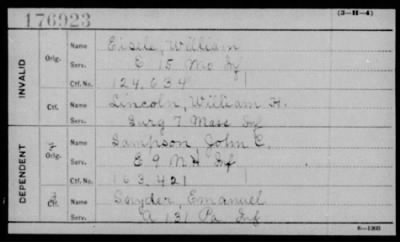 176923
(3-H-4)
INVALID
Orig.
Name Eisele, William
Serv. E 15 Mo Inf
Ctf. No. 124,634
Ctf.
Name Lincoln, William H.
Serv. Surg 7 Mass Inf
DEPENDENT
Orig.
Name Sampson, John C.
Serv. E 9 N H Inf
Ctf. No. 163,421
Ctf.
Name Snyder, Emanuel
Serv. A 131 Pa Inf